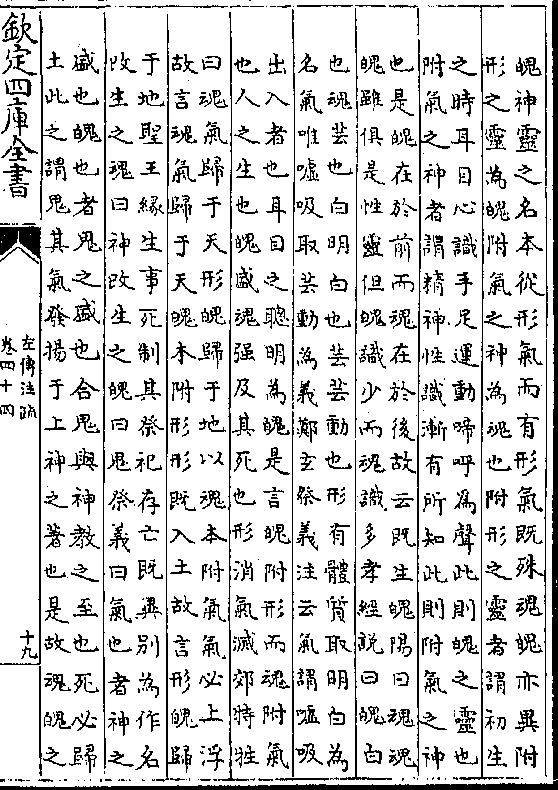 魄神靈之名本從形氣而有形氣既殊魂魄亦異附
形之靈為魄附氣之神為魂也附形之靈者謂初生
之時耳目心識手足運動啼呼為聲此則魄之靈也
附氣之神者謂精神性識漸有所知此則附氣之神
也是魄在於前而魂在於後故云既生魄陽曰魂魂
魄雖俱是性靈但魄識少而魂識多孝經說曰魄白
也魂芸也白明白也芸芸動也形有體質取明白為
名氣唯噓吸取芸動為義鄭玄祭義注云氣謂噓吸
出入者也耳目之聰明為魄是言魄附形而魂附氣
也人之生也魄盛魂强及其死也形消氣滅郊特牲
曰魂氣歸于天形魄歸于地以魂本附氣氣必上浮
故言魂氣歸于天魄本附形形既入土故言形魄歸
于地聖王緣生事死制其祭祀存亡既異別為作名
改生之魂曰神改生之魄曰鬼祭義曰氣也者神之
盛也魄也者鬼之盛也合鬼與神教之至也死必歸
土此之謂鬼其氣發揚于上神之著也是故魂魄之
欽定四庫全書
左傳注疏
卷四十四
十九